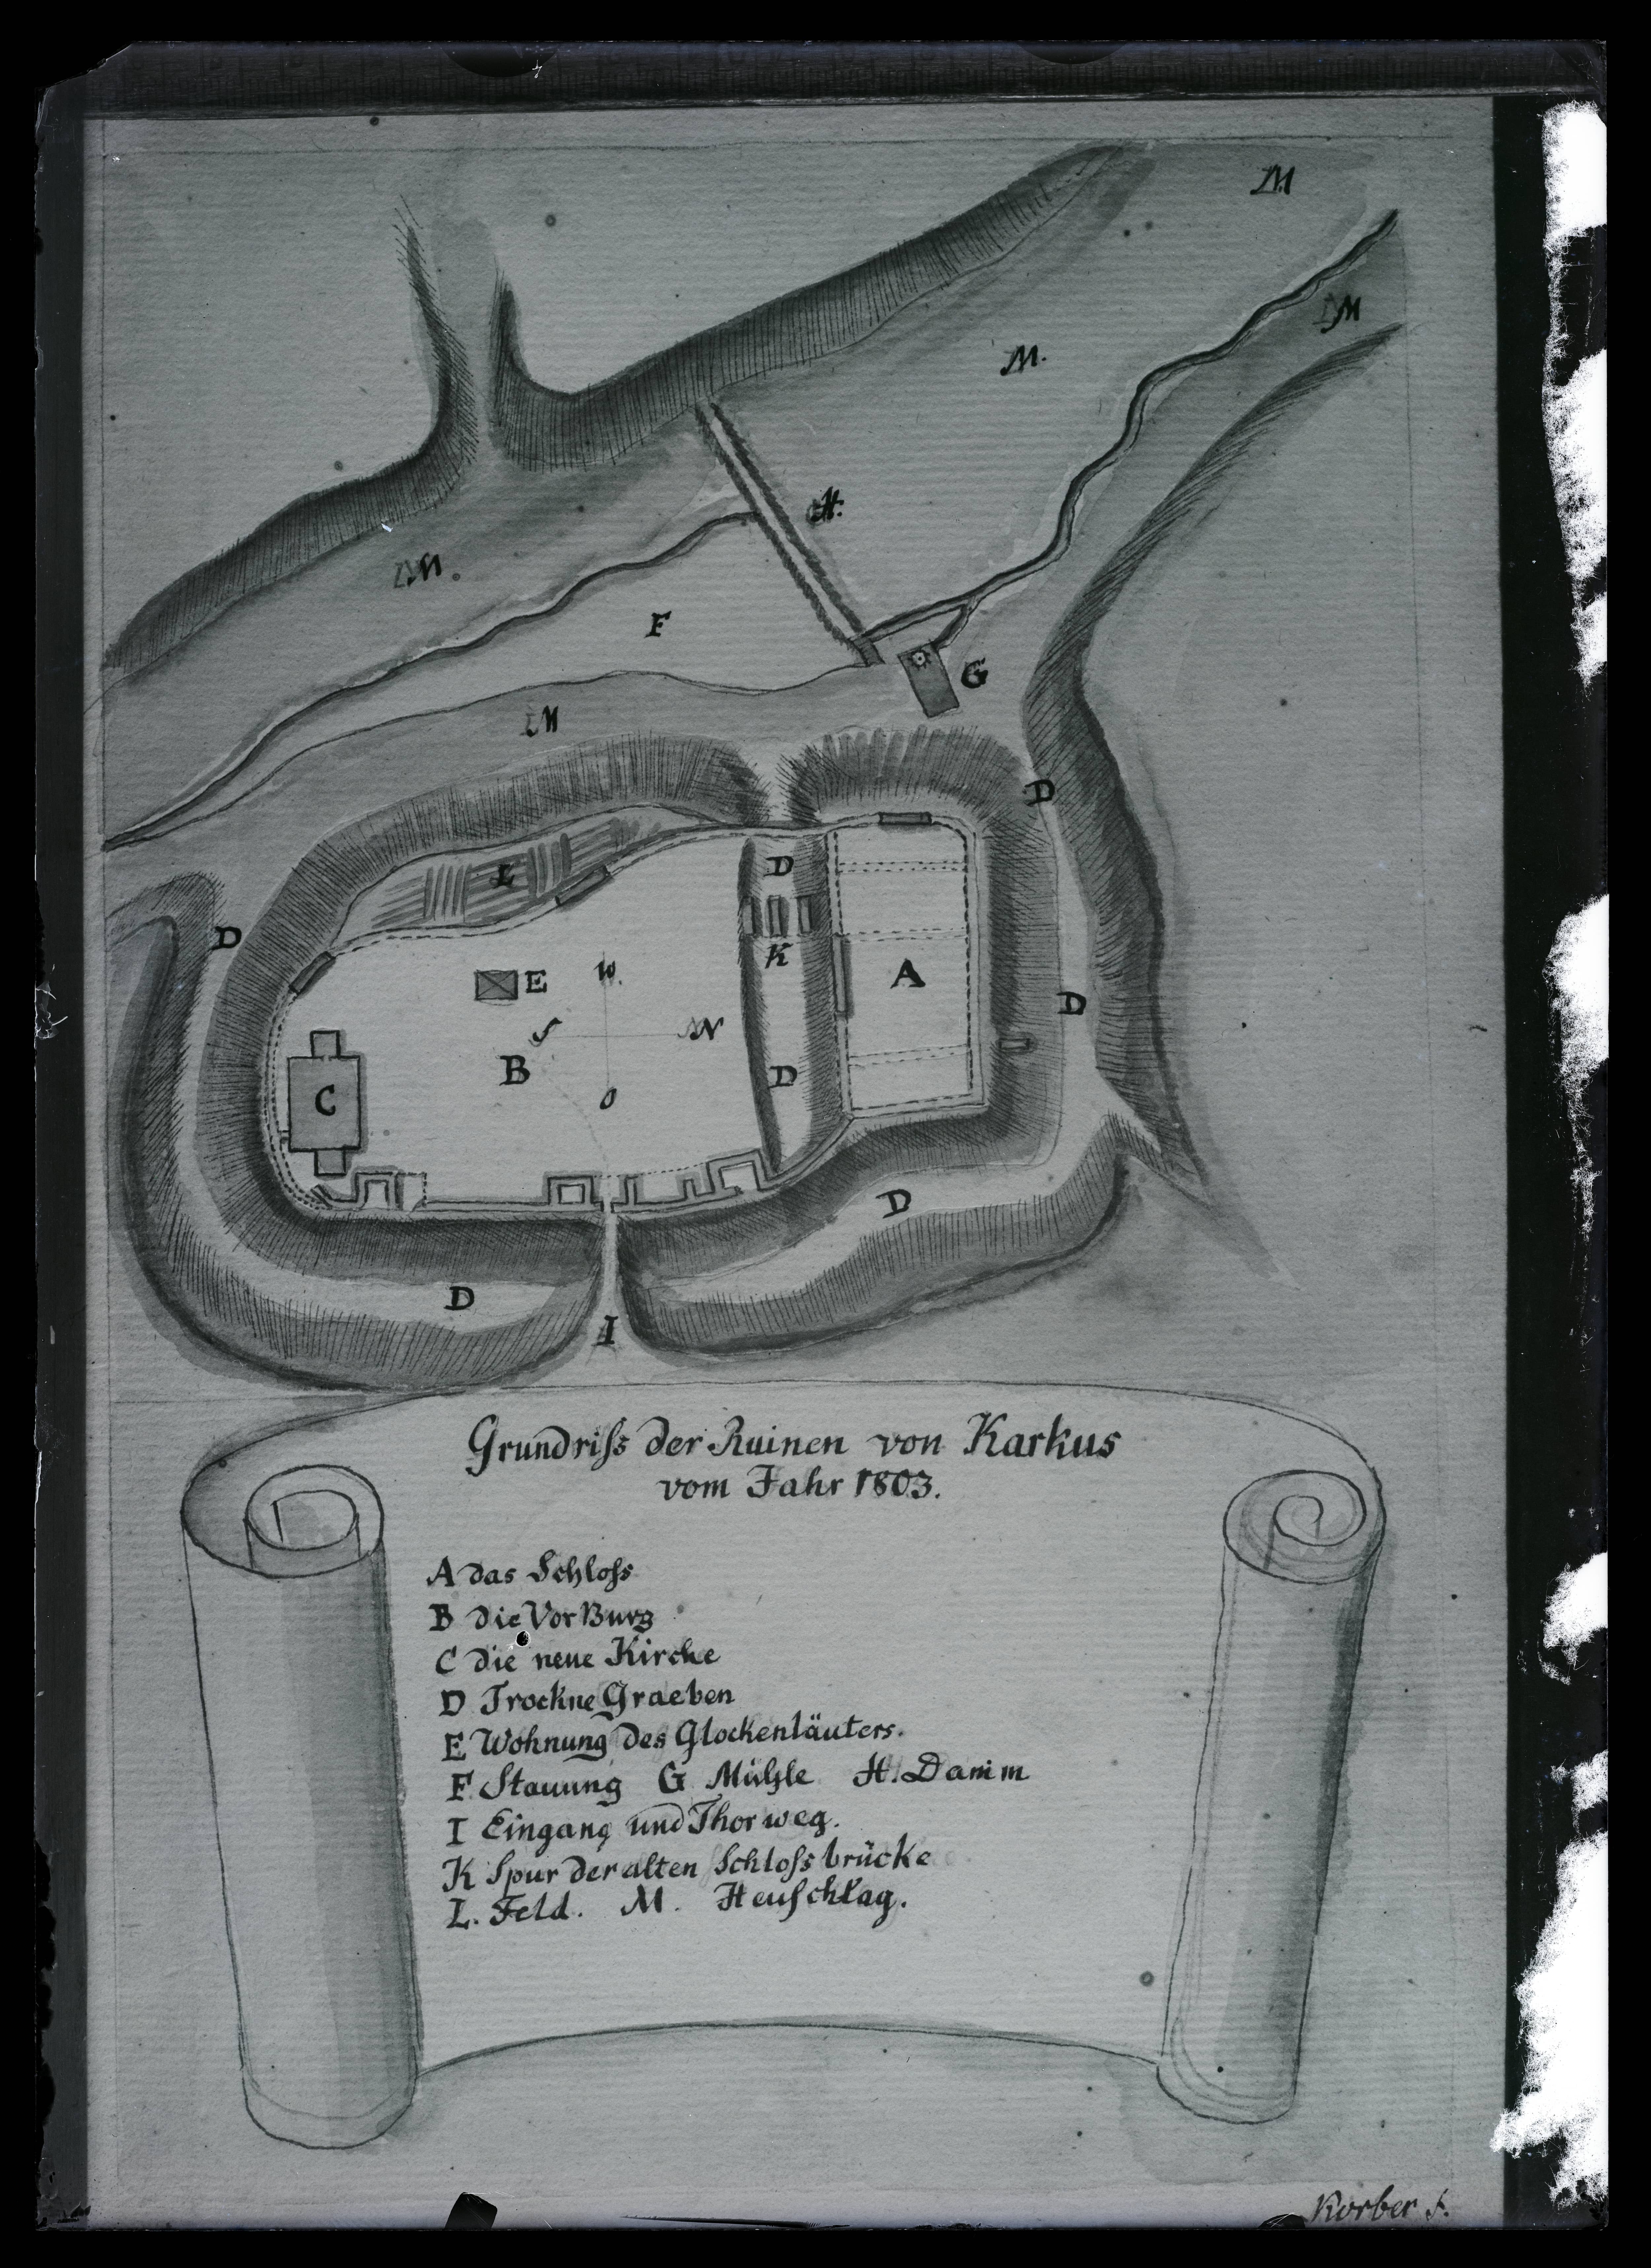 M
M
M.
H.
M.
F
G
M
D
L
D
D
K
E
W.
A
S
N
D
B
D
O
C
D
D
I
Grundriſs der Ruinen von Karkus
vom Jahr 1803.
A das Schloſs
B die VorBurg
C die neue Kirche
D Trockne Graeben
E Wohnung des Glockenläuters.
F Stauung G Mühle H. Damm
I Eingang und Thorweg.
K Spur der alten Schloſsbrücke
L. Feld. M. Heuſchlag.
Korber f.